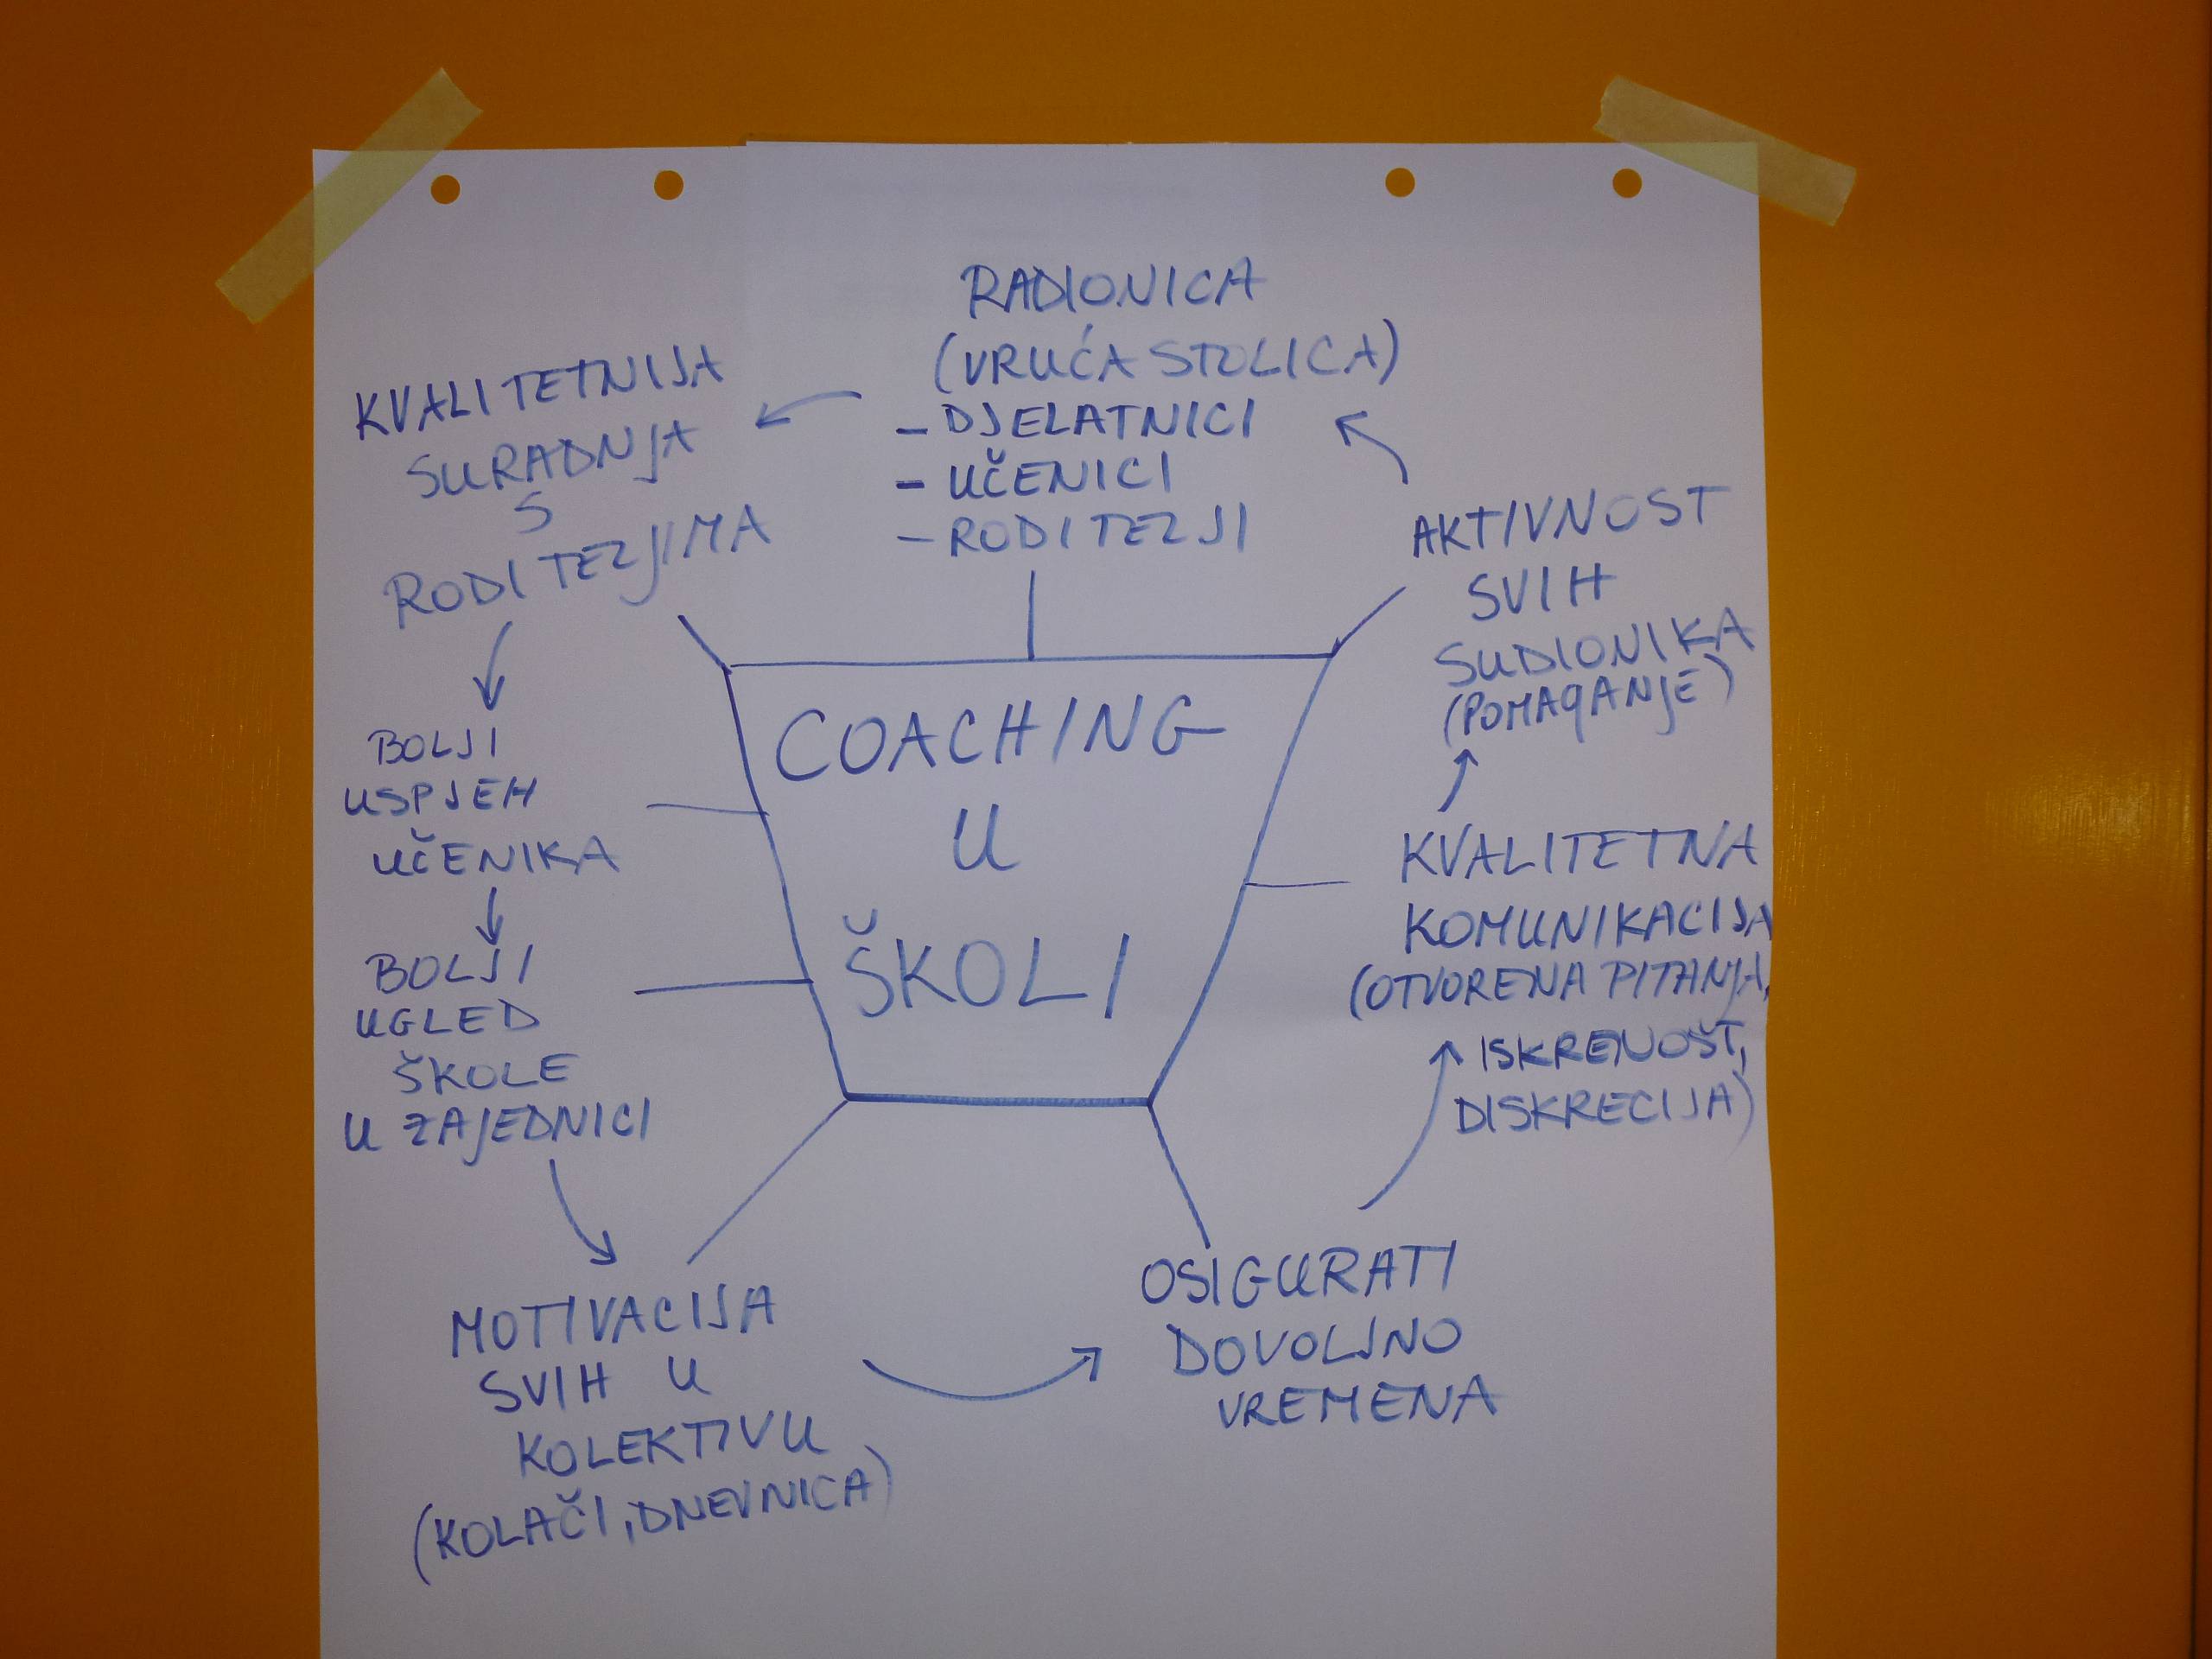 RADIONICA
(VRUĆA STOLICA)
- DJELATNICI
- UČENICI
- RODITELJI
KVALITETNIJA
SURADNJA
S
RODITELJIMA
BOLJI
USPJEH
UČENIKA
BOLJI
UGLED
ŠKOLE
U ZAJEDNICI
MOTIVACIJA
SVIH U
KOLEKTIVU
(KOLAČI, DNEVNICA)
OSIGURATI
DOVOLJNO
VREMENA
KVALITETNA
KOMUNIKACIJA
(OTVORENA PITANJA,
ISKRENOŠT,
DISKRECIJA)
AKTIVNOST
SVIH
SUDIONIKA
(POMAGANJE)
COACHING
U
ŠKOLI